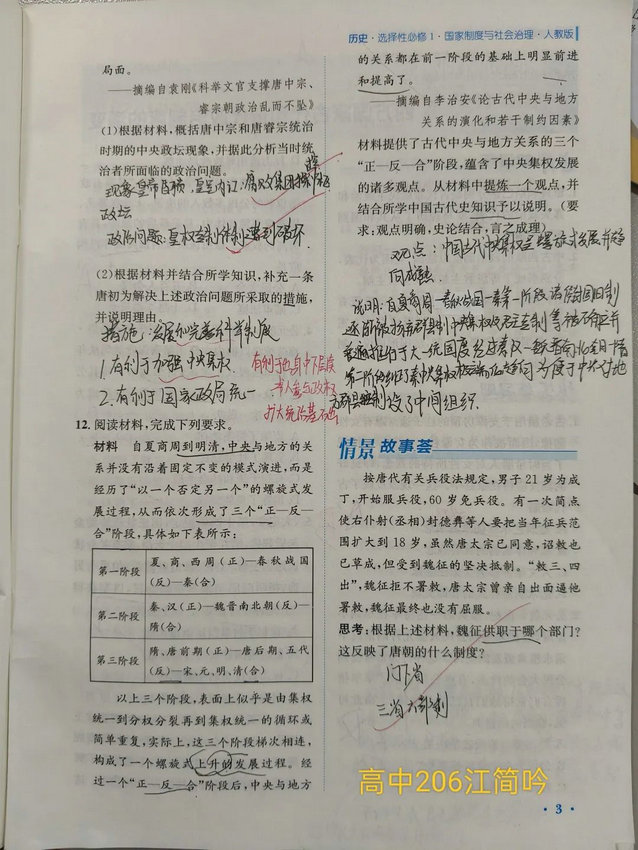 历史·选择性必修1·国家制度与社会治理·人教版
局面。
——摘编自袁刚《科举文官支撑唐中宗、
睿宗朝政治乱而不坠》
(1)根据材料，概括唐中宗和唐睿宗统治
时期的中央政坛现象，并据此分析当时统
治者所面临的政治问题。
政坛
政治问题：皇权专制体制遭到破坏
(2)根据材料并结合所学知识，补充一条
唐初为解决上述政治问题所采取的措施，
并说明理由。
措施：发展和完善科举制度
1.有利于加强中央集权
2.有利于国家政局统一
有利于出身中下层度
扩大统治基础
12.阅读材料，完成下列要求。
材料 自夏商周到明清，中央与地方的关
系并没有沿着固定不变的模式演进，而是
经历了“以一个否定另一个”的螺旋式发
展过程，从而依次形成了三个“正—反—
合”阶段，具体如下表所示：
第一阶段 夏、商、西周（正）—春秋战国
（反）—秦（合）
第二阶段 秦、汉（正）—魏晋南北朝（反）—
隋（合）
第三阶段 隋、唐前期（正）—唐后期、五代
（反）—宋、元、明、清（合）
以上三个阶段，表面上似乎是由集权
统一到分权分裂再到集权统一的循环或
简单重复，实际上，这三个阶段梯次相连，
构成了一个螺旋式上升的发展过程。经
过一个“正—反—合”阶段后，中央与地方
的关系都在前一阶段的基础上明显前进
和提高了。
——摘编自李治安《论古代中央与地方
关系的演化和若干制约因素》
材料提供了古代中央与地方关系的三个
“正—反—合”阶段，蕴含了中央集权发展
的诸多观点。从材料中提炼一个观点，并
结合所学中国古代史知识予以说明。（要
求：观点明确，史论结合，言之成理）
观点：中国古代中央集权呈螺旋式发展并趋
向成熟
设了中间组织.
情景 故事荟
按唐代有关兵役法规定，男子21岁为成
丁，开始服兵役，60岁免兵役。有一次简点
使右仆射(丞相)封德彝等人要把当年征兵范
围扩大到18岁，虽然唐太宗已同意，诏敕也
已草成，但受到魏征的坚决抵制。“敕三、四
出”，魏征拒不署敕，唐太宗曾亲自出面逼他
署敕，魏征最终也没有屈服。
思考：根据上述材料，魏征供职于哪个部门？
这反映了唐朝的什么制度？
门下省
三省六部制
高中206江简吟
·3·